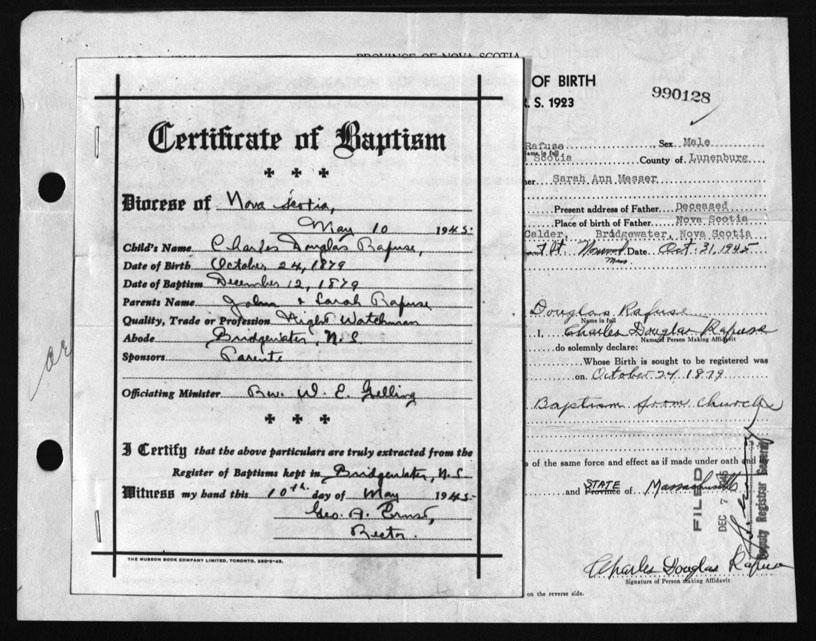 PROVINCE OF NOVA SCOTIA
Certificate of Baptism
Diocese of Nova Scotia,
May 10 1945.
Child's Name Charles Douglas Rafuse,
Date of Birth October 24, 1879
Date of Baptism December 12, 1879
Parents Name John & Sarah Rafuse
Quality, Trade or Profession Night Watchman
Abode Bridgewater, N.S.
Sponsors Parents
Officiating Minister Rev. W. E. Gelling
I Certify that the above particulars are truly extracted from the
Register of Baptisms kept in Bridgewater, N.S.
Witness my hand this 10th day of May 1945.
Geo. A. Ernst,
Rector.
THE MUSSON BOOK COMPANY LIMITED, TORONTO.
or
OF BIRTH
R. S. 1923
990128
Rafuse Sex Male
Name in full
Scotia County of Lunenburg
Sarah Ann Messer
Present address of Father Deceased
Place of birth of Father Nova Scotia
Calder, Bridgewater, Nova Scotia
Mass Date Oct. 31, 1945
Douglas Rafuse
Name in full
I, Charles Douglas Rafuse
Name of Person Making Affidavit
do solemnly declare:
Whose Birth is sought to be registered was
on October 24 1879
Baptism from Church
of the same force and effect as if made under oath and
and STATE Province of Massachusetts
FILED
DEC 7
Deputy Registrar General
Charles Douglas Rafuse
Signature of Person Making Affidavit
on the reverse side.